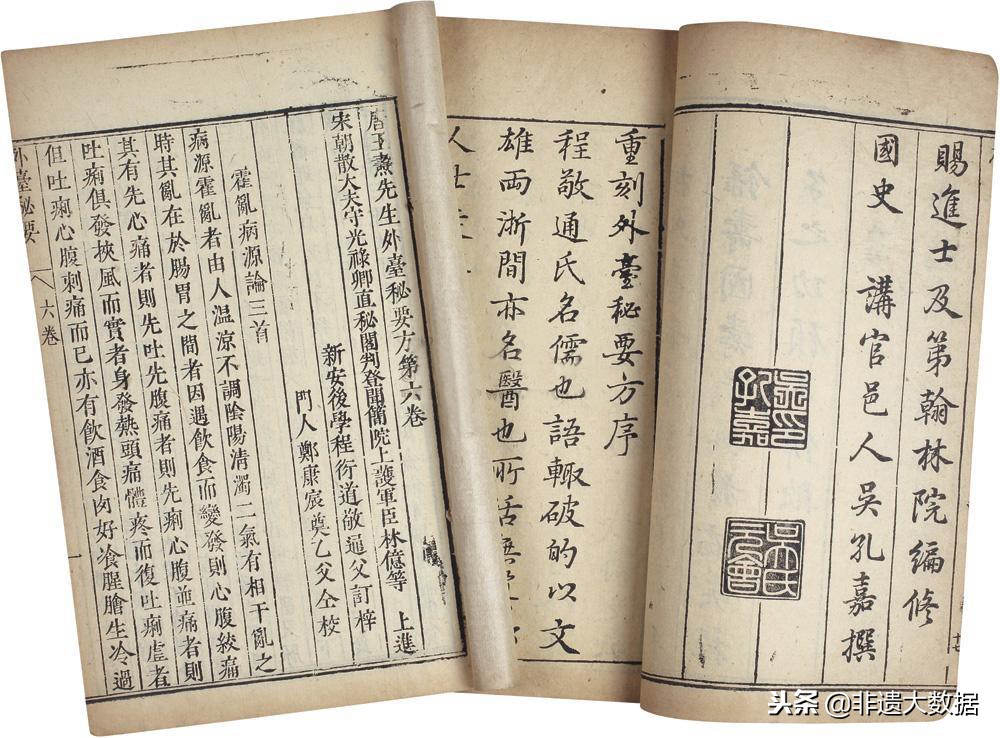 賜進士及第翰林院編修
國史　講官邑人吳孔嘉撰
吳印孔嘉
重刻外臺秘要方序
程敬通氏名儒也語輙破的以文
雄両淅間亦名醫也所活無
人士
唐王燾先生外臺秘要方第六卷
宋朝散大夫守光祿卿直秘閣判登聞簡院上護軍臣林億等　上進
新安後學程衍道敬通父訂梓
門人鄭康宸奠乙父仝校
霍亂病源論三首
病源霍亂者由人温凉不調陰陽清濁二氣有相干亂之
時其亂在於腸胃之間者因遇飲食而變發則心腹絞痛
其有先心痛者則先吐先腹痛者則先痢心腹並痛者則
吐痢俱發挾風而實者身發熱頭痛體疼而復吐痢虛者
但吐痢心腹刺痛而已亦有飲酒食肉好飡腥膾生冷過
外臺秘要　六卷
头条 @非遗大数据